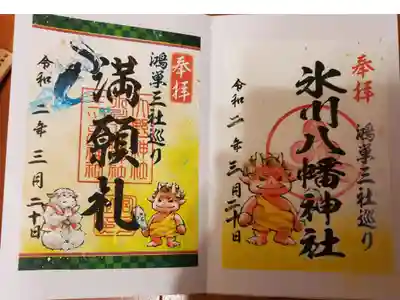 奉拝
鴻巣三社巡り
氷川八幡神社
令和二年三月二十日
奉拝
鴻巣三社巡り
満願札
令和二年三月二十日